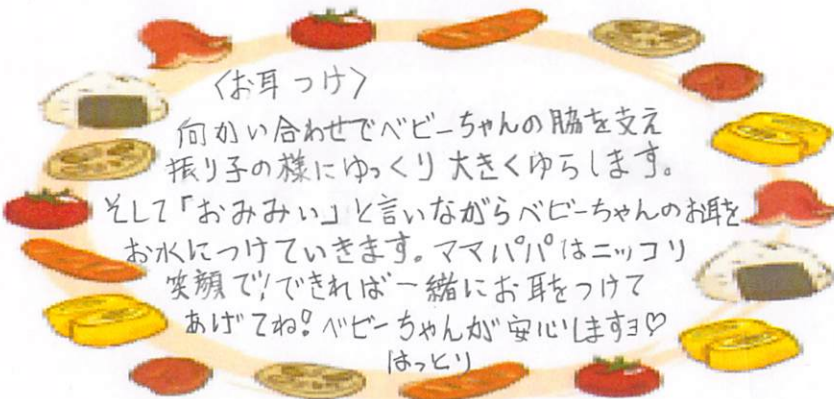 〈お耳つけ〉
向かい合わせでベビーちゃんの脇を支え
振り子の様にゆっくり大きくゆらします。
そして「おみみぃ」と言いながらベビーちゃんのお耳を
お水につけていきます。ママパパはニッコリ
笑顔で!できれば一緒にお耳をつけて
あげてね!ベビーちゃんが安心しますヨ♡
はっとり